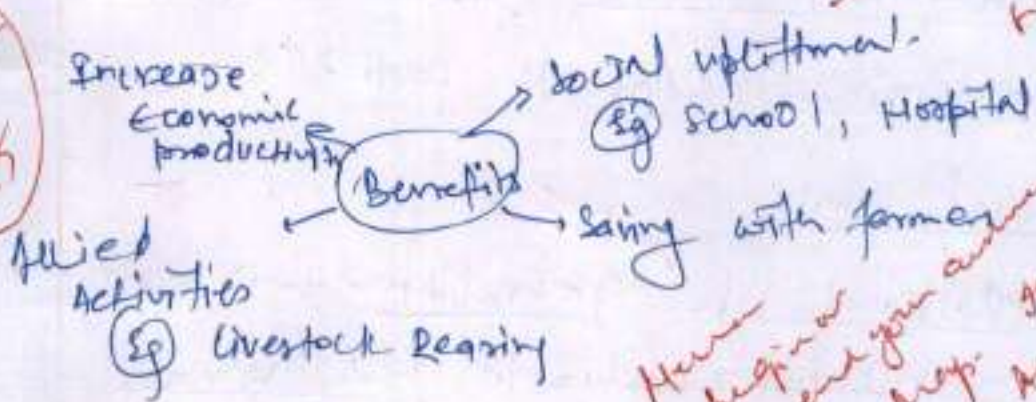 Increase
Economic
productivity
Social upliftment.
Eg School, Hospital
Benefits
Saving with farmer
Allied
Activities
Eg Livestock Rearing
end your